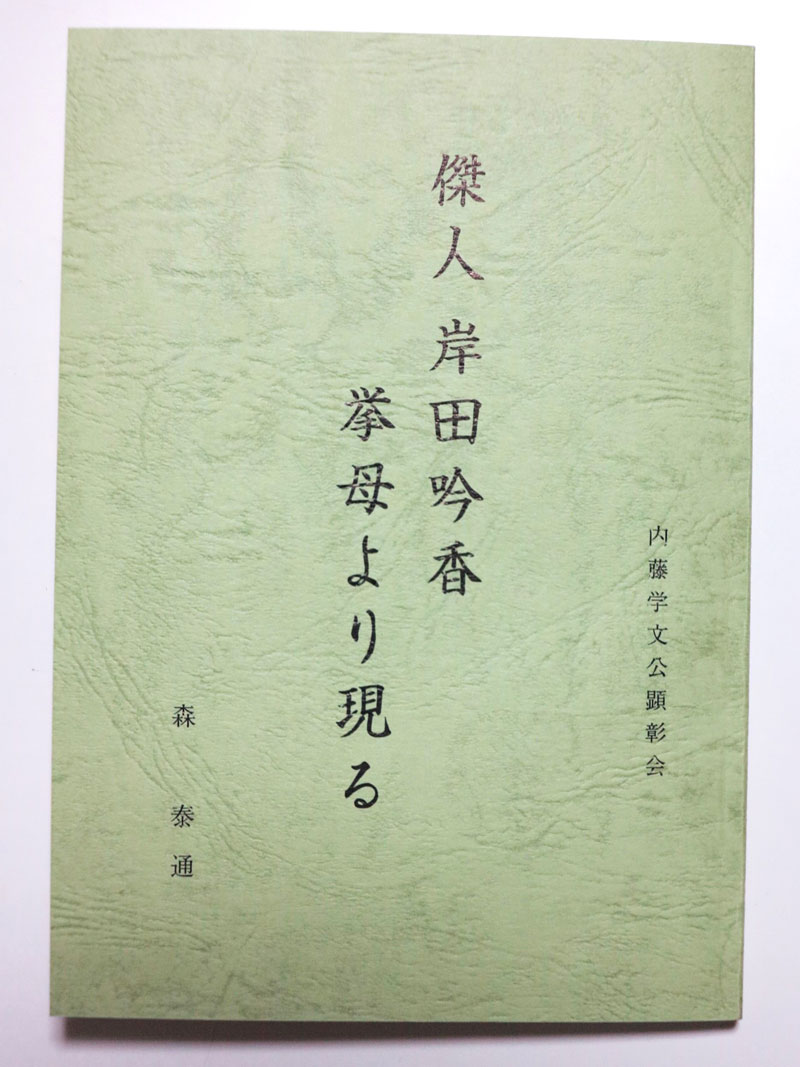 内藤学文公顕彰会
傑人 岸田吟香
挙母より現る
森 泰通